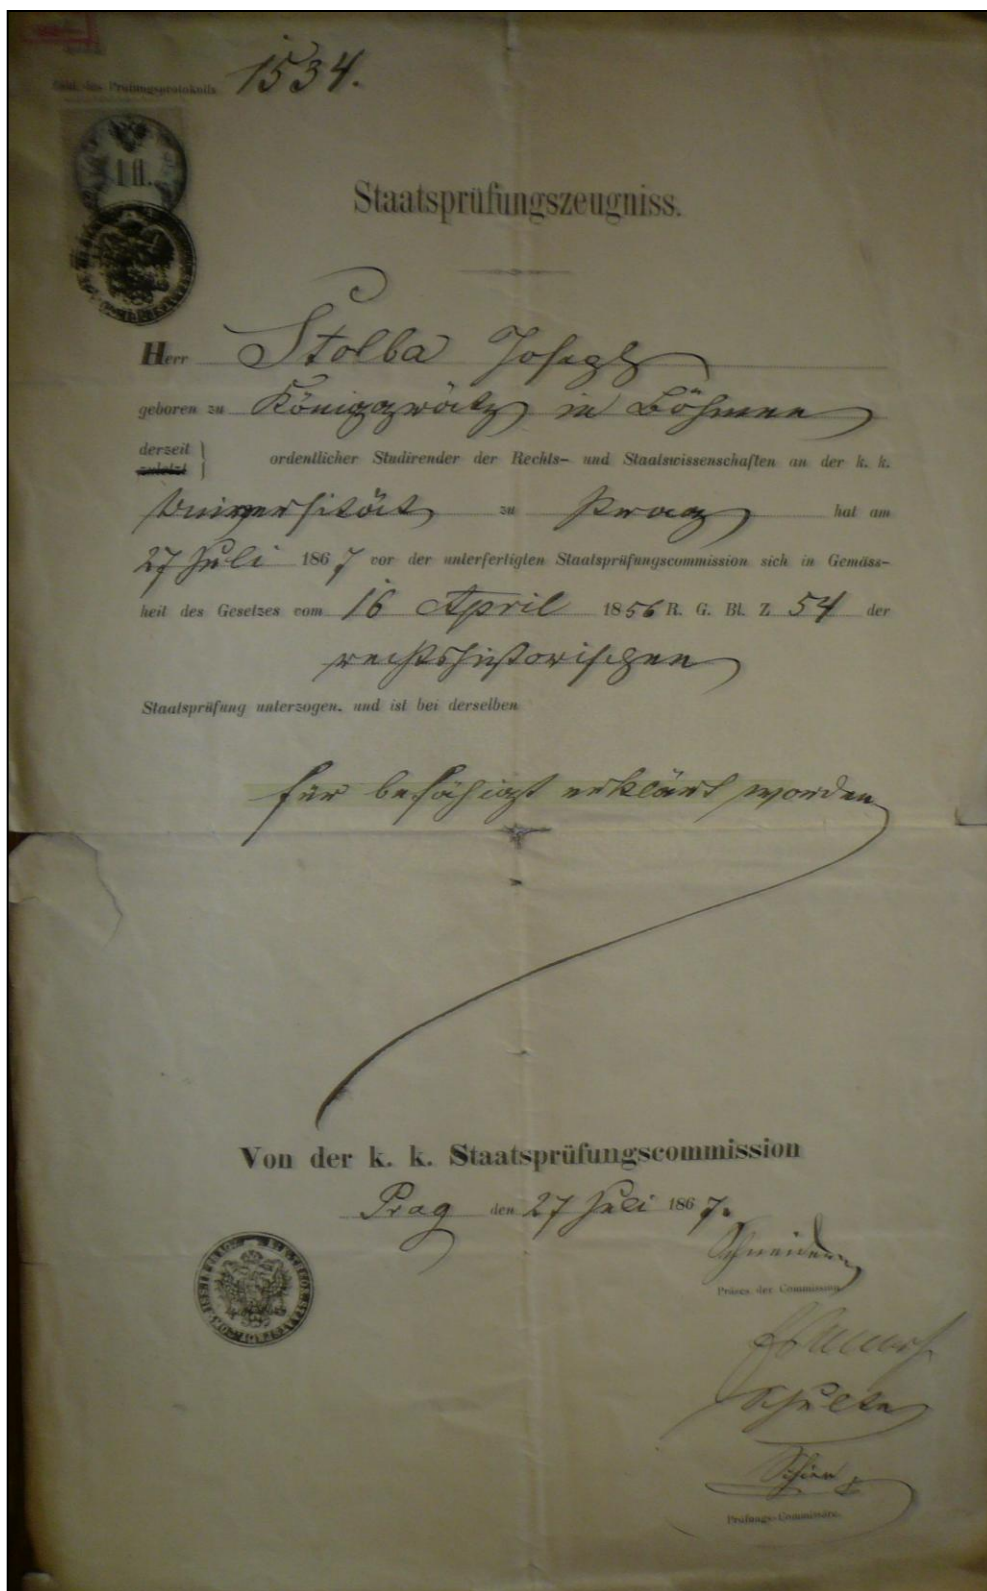 Zahl des Prüfungsprotokolls 1534.
1 fl.
Staatsprüfungszeugniss.
Herr Stolba Joseph
geboren zu Königgrätz in Böhmen
derzeit
zuletzt
ordentlicher Studirender der Rechts- und Staatswissenschaften an der k. k.
Universität zu Prag hat am
27 Juli 1867 vor der unterfertigten Staatsprüfungscommission sich in Gemäss-
heit des Gesetzes vom 16 April 1856 R. G. Bl. Z 54 der
rechtshistorischen
Staatsprüfung unterzogen, und ist bei derselben
für befähigt erklärt worden
Von der k. k. Staatsprüfungscommission
Prag den 27 Juli 1867.
Schneider
Präses der Commission
Schulte
Schier
Prüfungs-Commissäre.